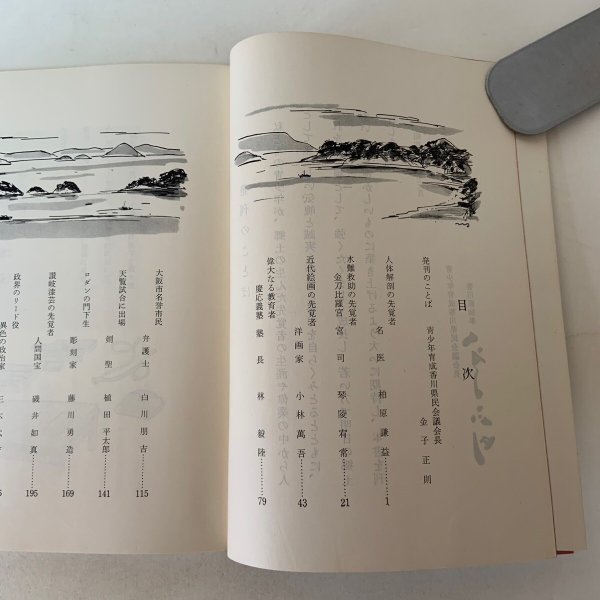 目次
発刊のことば
青少年育成香川県民会議会長 金子正則
人体解剖の先覚者
名医 柏原謙益……1
水難救助の先覚者
金刀比羅宮宮司 琴陵宥常……21
近代絵画の先覚者
洋画家 小林萬吾……43
偉大なる教育者
慶応義塾塾長 林毅陸……79
大阪市名誉市民
弁護士 白川朋吉……115
天覧試合に出場
剣聖 植田平太郎……141
ロダンの門下生
彫刻家 藤川勇造……169
讃岐漆芸の先覚者
人間国宝 磯井如真……195
政界のリード役
異色の政治家